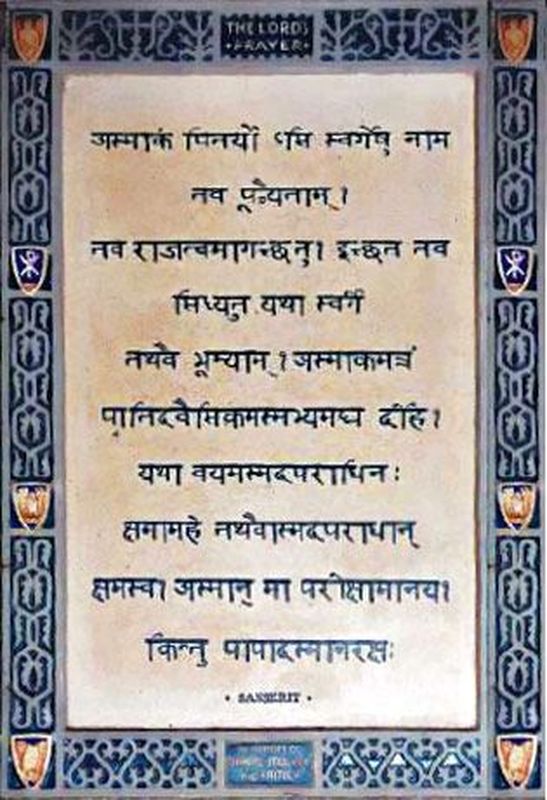 THE LORDS
• PRAYER •
अस्माकं पितर्यो ऽसि स्वर्गेषु नाम
तव पूज्यैताम्।
तव राजत्वमागच्छतु। इच्छत तव
सिध्यतु यथा स्वर्गे
तथैव भूम्याम्। अस्माकमन्नं
प्रातिदवैसिकमस्मभ्यमद्य देहि।
यथा वयमस्मदपराधिनः
क्षमामहे तथैवास्मदपराधान्
क्षमस्व। अस्मान् मा परीक्षामानय।
किन्तु पापादस्मानरक्षः
• SANSKRIT •
IN MEMORY OF